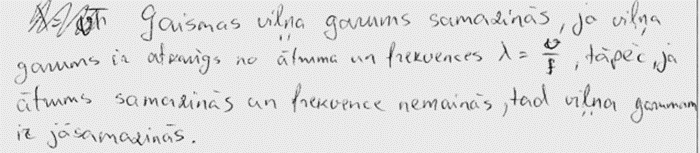 Gaismas viļņa garums samazinās, jo viļņa
garums ir atkarīgs no ātruma un frekvences λ = v/f, tāpēc, ja
ātrums samazinās un frekvence nemainās, tad viļņa garumam
ir jāsamazinās.